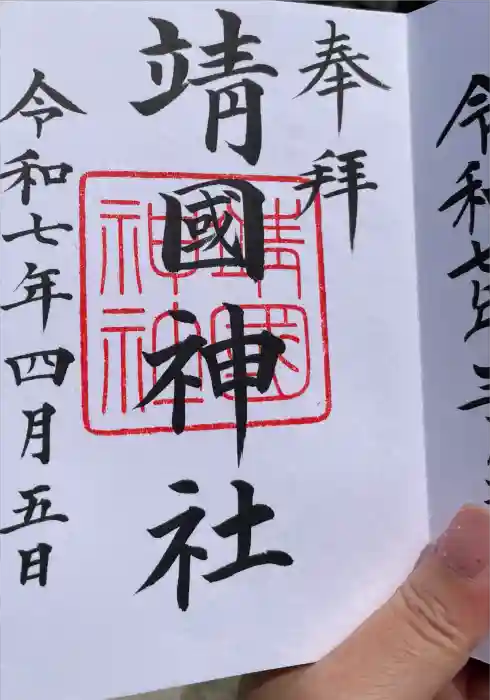 令和七年三
奉拝
靖國神社
靖國
神社
令和七年四月五日